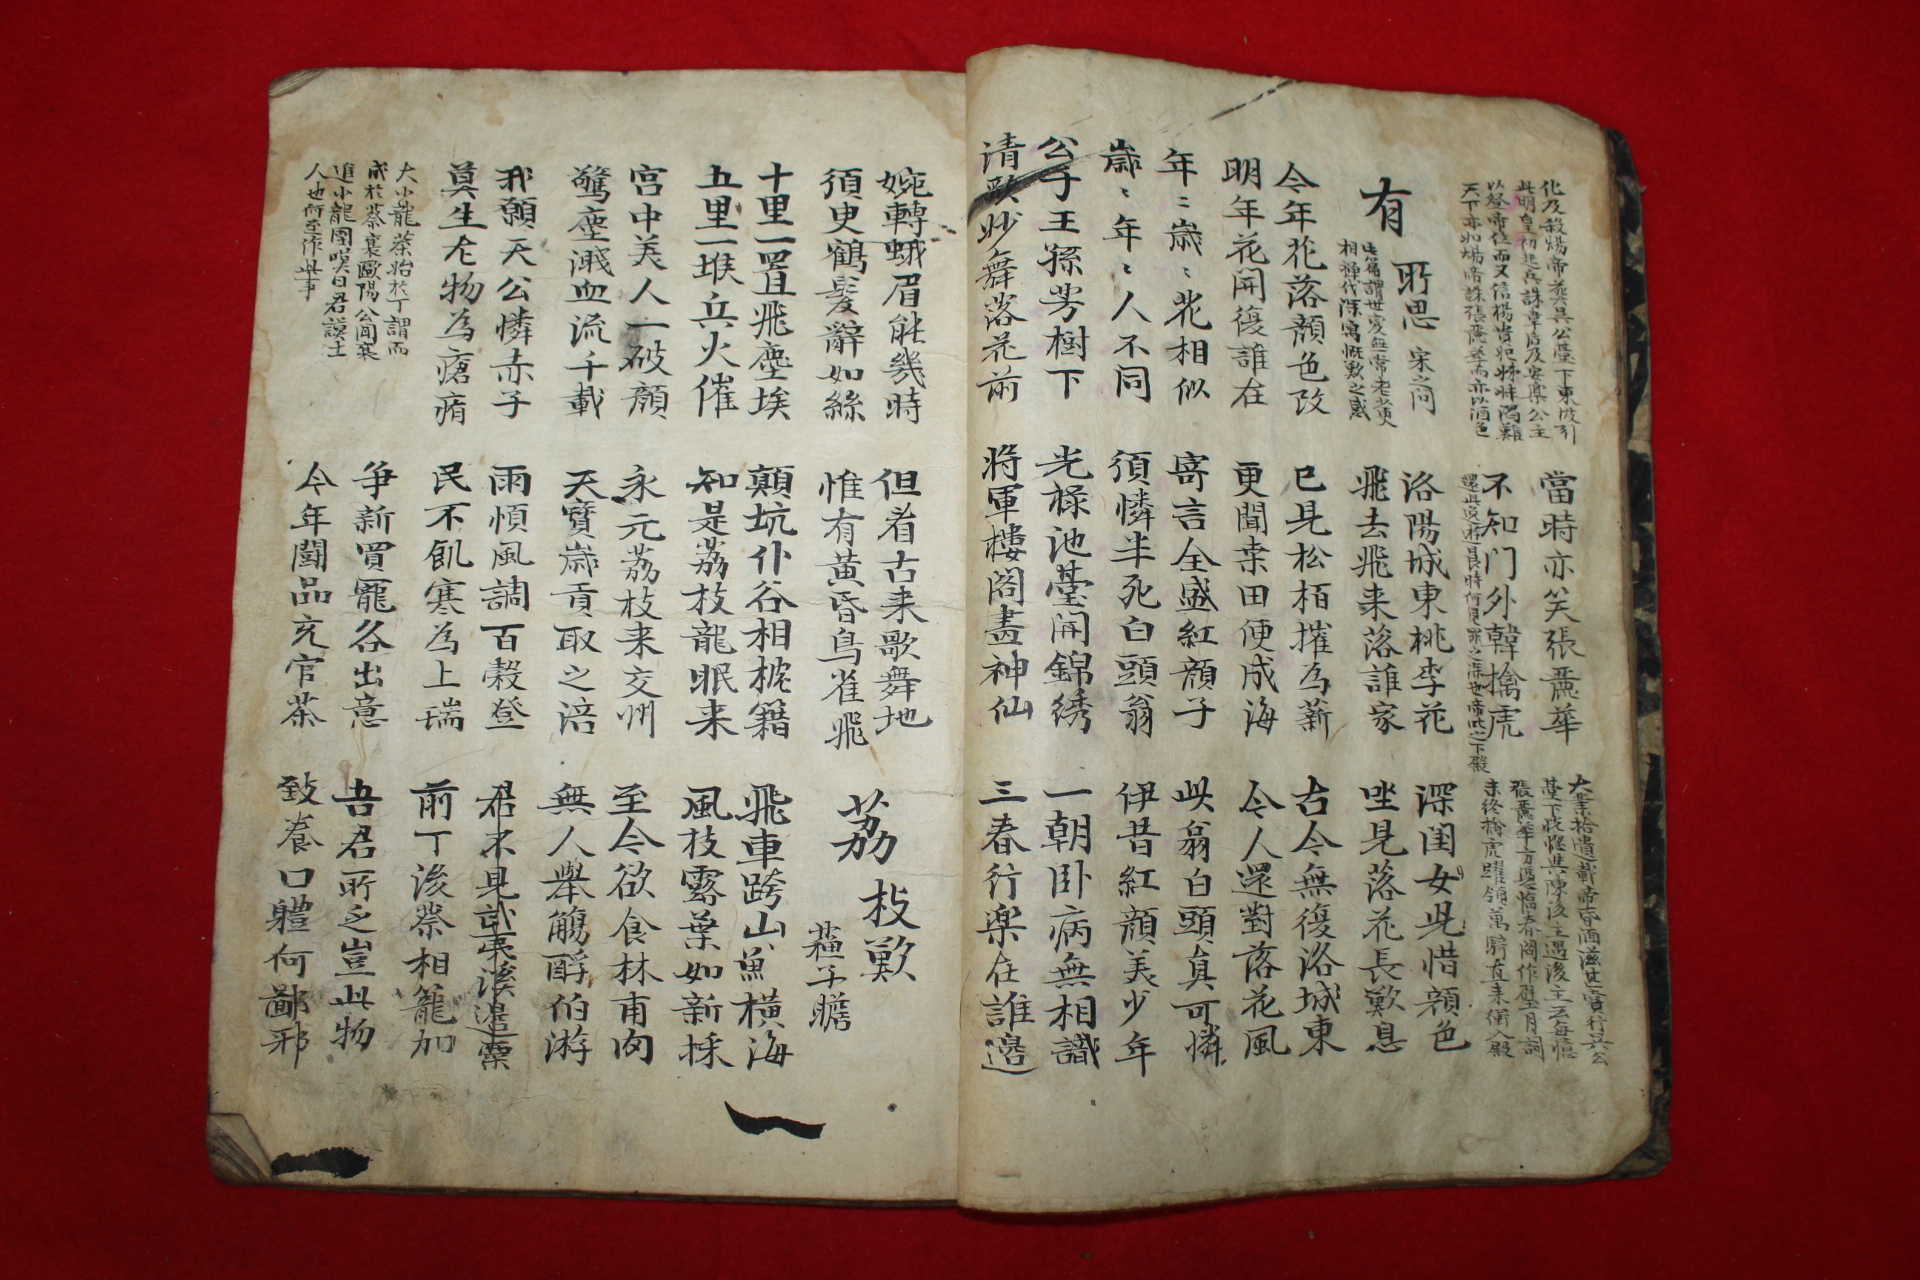 化及殺煬帝於吳公臺下東坡引
此明皇初起兵誅韋后及安樂公主
以登帝位而又信楊貴妃姊妹濁亂
天下亦如煬帝誅張麗華而亦以酒色
當時亦笑張麗華
不知门外韓擒虎
大業拾遺載帝昏湎滋甚嘗行吳公
臺下恍惚與陳後主遇後主云每憶
張麗華方憑臨春閣作壁月詞
未終擒虎躍領萬騎直來衝入殿
還此後遊長時何見罪之深也帝叱之下殿
有所思 宋之问
此篇謂世變無常老黃
相禪代深寓慨歎之感
洛陽城東桃李花
飛去飛来落誰家
深闺女児惜顔色
坐見落花長歎息
今年花落顔色改
明年花開復誰在
已見松栢摧為薪
更聞桒田便成海
古今無復洛城東
令人還對落花風
年〻歲〻花相似
歲〻年〻人不同
寄言全盛紅顔子
須憐半死白頭翁
此翁白頭真可憐
伊昔紅顔美少年
公子王孫芳樹下
清歌妙舞落花前
光祿池臺開錦綉
將軍樓阁畫神仙
一朝卧病無相識
三春行樂在誰邊
婉轉蛾眉能幾時
須臾鶴髮辭如絲
但看古来歌舞地
惟有黃昏鳥雀飛
荔枝歎
蘓子瞻
十里一置飛塵埃
五里一堠兵火催
顛坑仆谷相枕籍
知是荔枝龍眼来
飛車跨山鶻橫海
風枝露葉如新採
宮中美人一破顔
驚塵濺血流千載
永元荔枝来交州
天寶歲貢取之涪
至今欲食林甫肉
無人舉觴酹伯游
我願天公憐赤子
莫生尤物為瘡痏
雨順風調百穀登
民不飢寒為上瑞
君不見武夷溪邊粟
前丁後蔡相籠加
大小龍茶始於丁謂而
成於蔡襄歐陽公聞襄
進小龍團嘆曰君謨士
人也何至作此事
爭新買寵各出意
今年鬪品充官茶
吾君所乏豈此物
致養口體何鄙邪